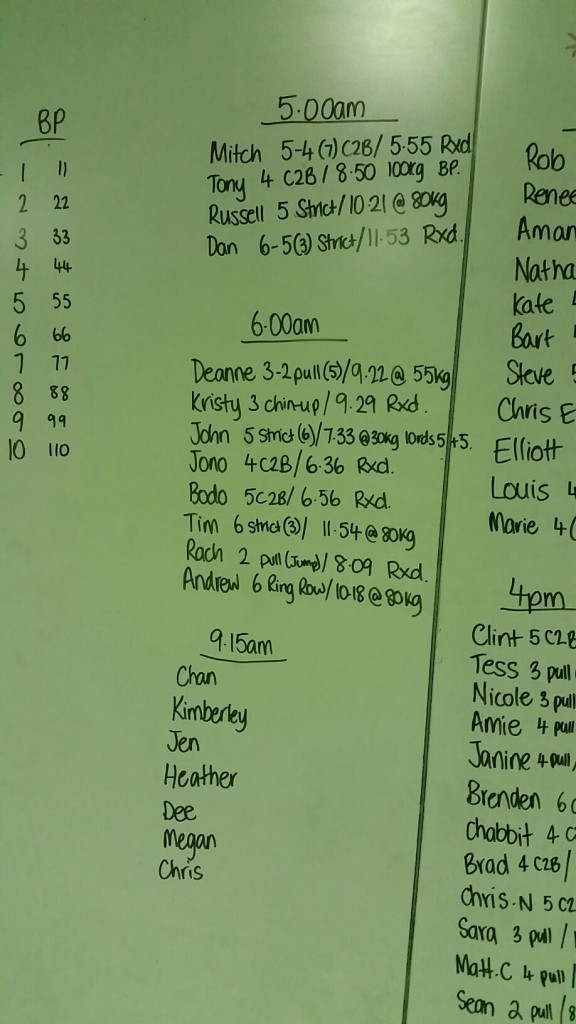 BP
1 11
2 22
3 33
4 44
5 55
6 66
7 77
8 88
9 99
10 110
5.00am
Mitch 5-4(7) C2B/ 5.55 Rxd
Tony 4 C2B / 8.50 100kg BP.
Russell 5 Strict/10.21 @ 80kg
Dan 6-5(3) Strict/11.53 Rxd.
6.00am
Deanne 3-2pull(5)/9.22@ 55kg
Kristy 3 chin-up/ 9.29 Rxd.
John 5 strict(6)/7.33 @30kg 10rds 5+5.
Jono 4C2B/6.36 Rxd.
Bodo 5C2B/ 6.56 Rxd.
Tim 6 strict(3)/ 11.54@80kg
Rach 2 pull(Jump)/ 8.09 Rxd.
Andrew 6 Ring Row/10.18@80kg
9.15am
Chan
Kimberley
Jen
Heather
Dee
Megan
Chris
Rob
Renee
Aman
Natha
Kate
Bart
Steve
Chris E
Elliott
Louis 4
Marie 4(
4pm
Clint 5 C2B
Tess 3 pull
Nicole 3 pull
Amie 4 pull
Janine 4 pull/
Brenden 6
Chabbit 4 C
Brad 4 C2B/
Chris.N 5 C2
Sara 3 pull /
Matt.C 4 pull/
Sean 2 pull /8